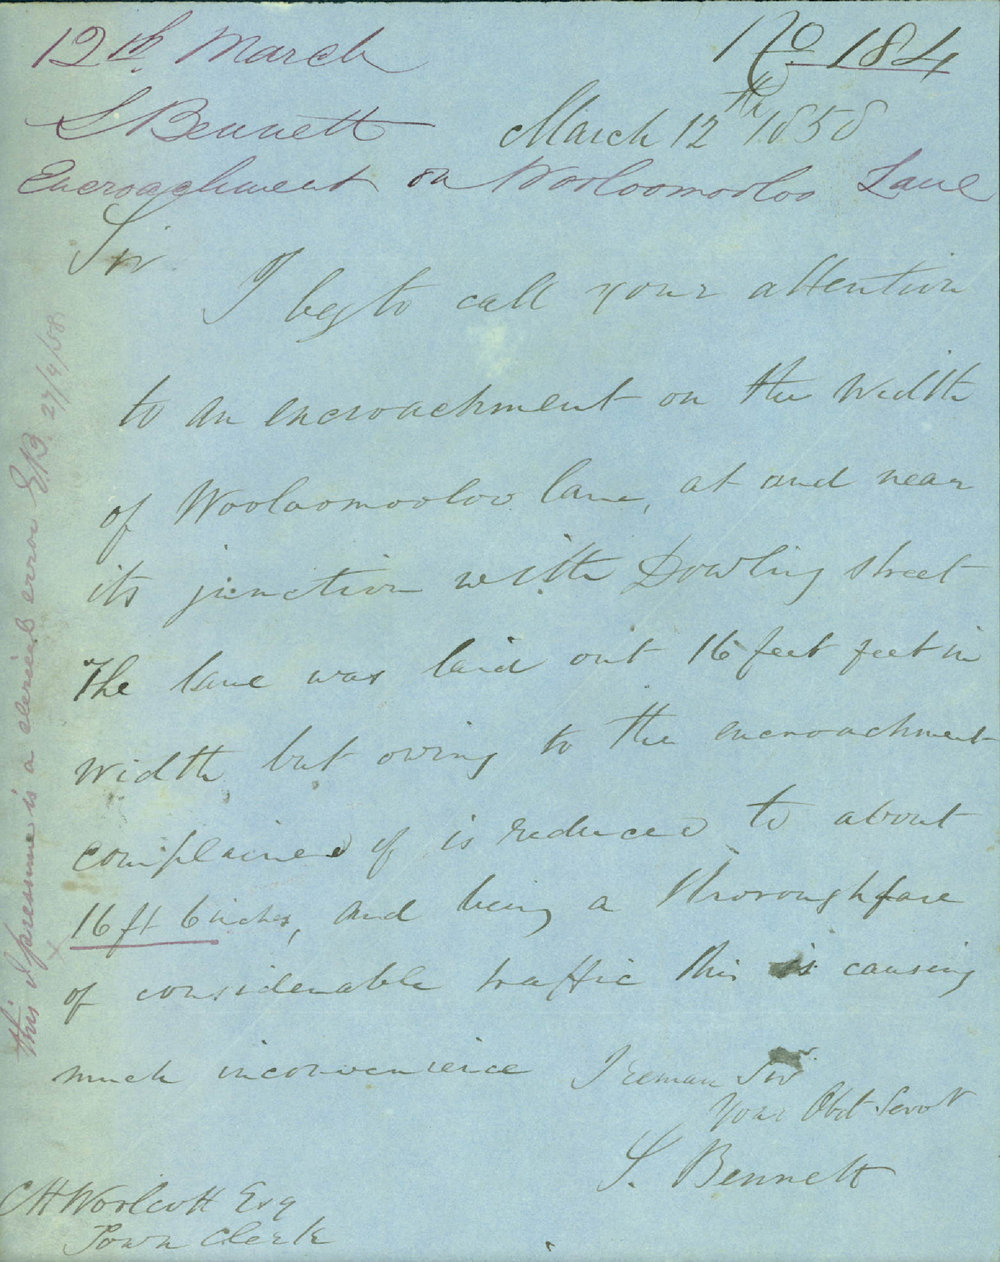 12th March
No. 184
S Bennett
March 12th 1858
Encroachment on Wooloomooloo Lane
Sir
I beg to call your attention
to an encroachment on the width
of Wooloomooloo lane, at and near
its junction with Dowling street
The lane was laid out 16 feet feet in
width but owing to the encroachment
complained of is reduced to about
16 ft 6 inches, and being a thoroughfare
of considerable traffic this is causing
much inconvenience
I remain Sir
Your Obdt Servt
S. Bennett
C H Woolcott Esq
Town Clerk
x This I presume is a clerical error E.B. 27/4/58